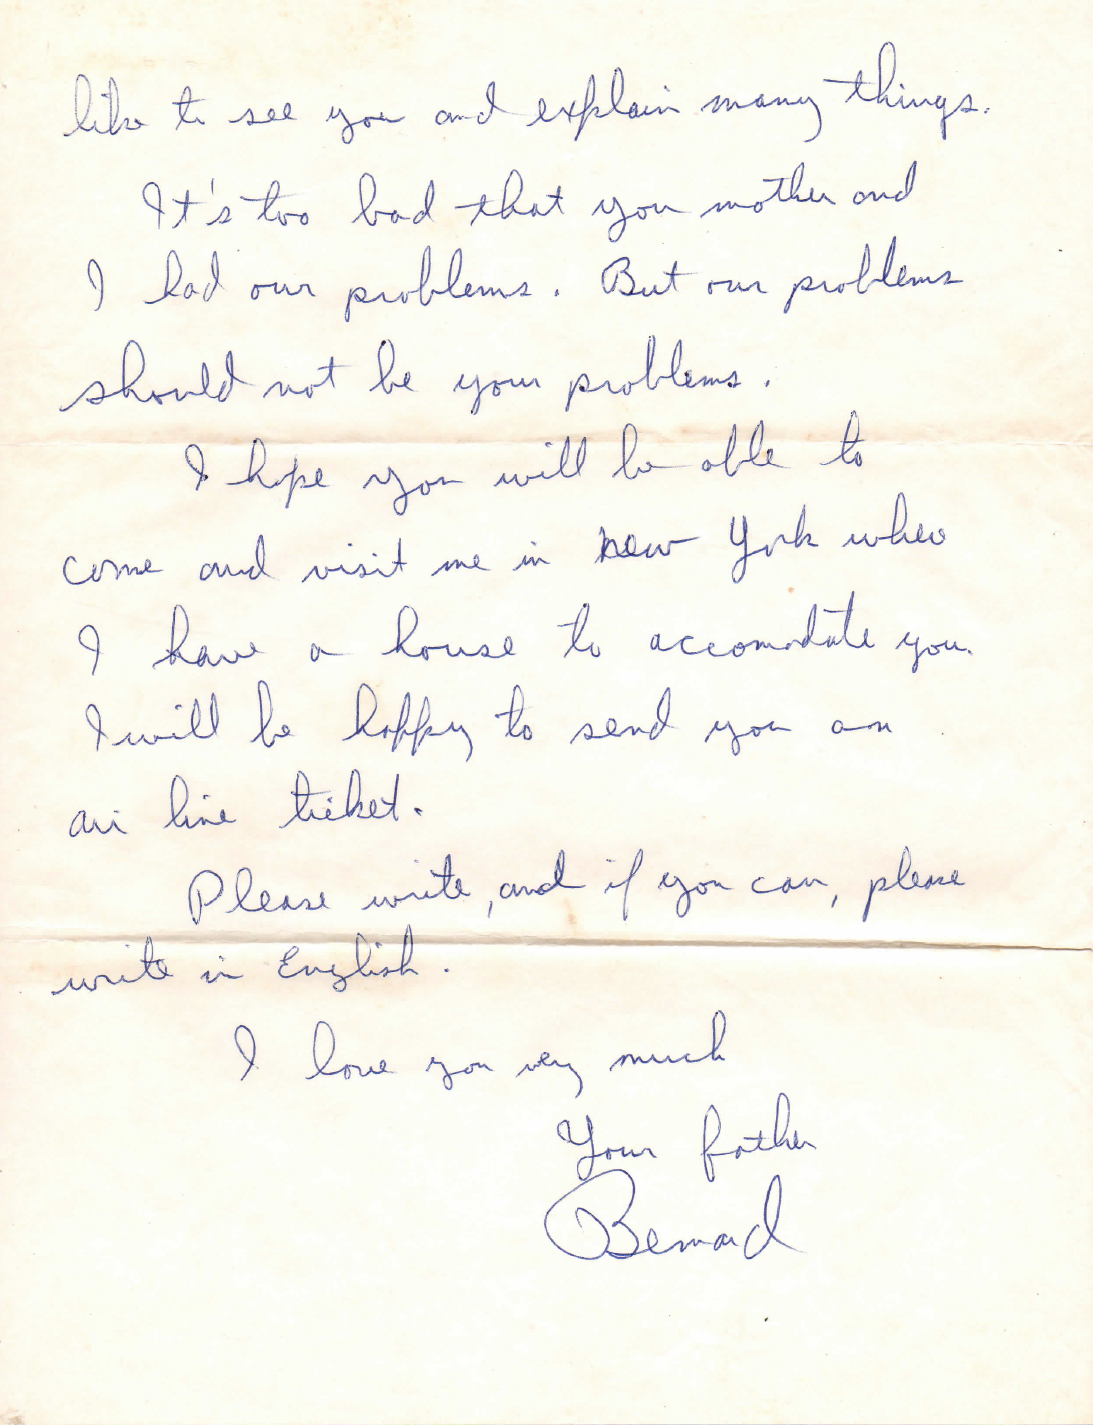 like to see you and explain many things.
It's too bad that you mother and
I had our problems. But our problems
should not be your problems.
I hope you will be able to
come and visit me in New York where
I have a house to accomodate you.
I will be happy to send you an
air line ticket.
Please write, and if you can, please
write in English.
I love you very much
Your father
Bernard